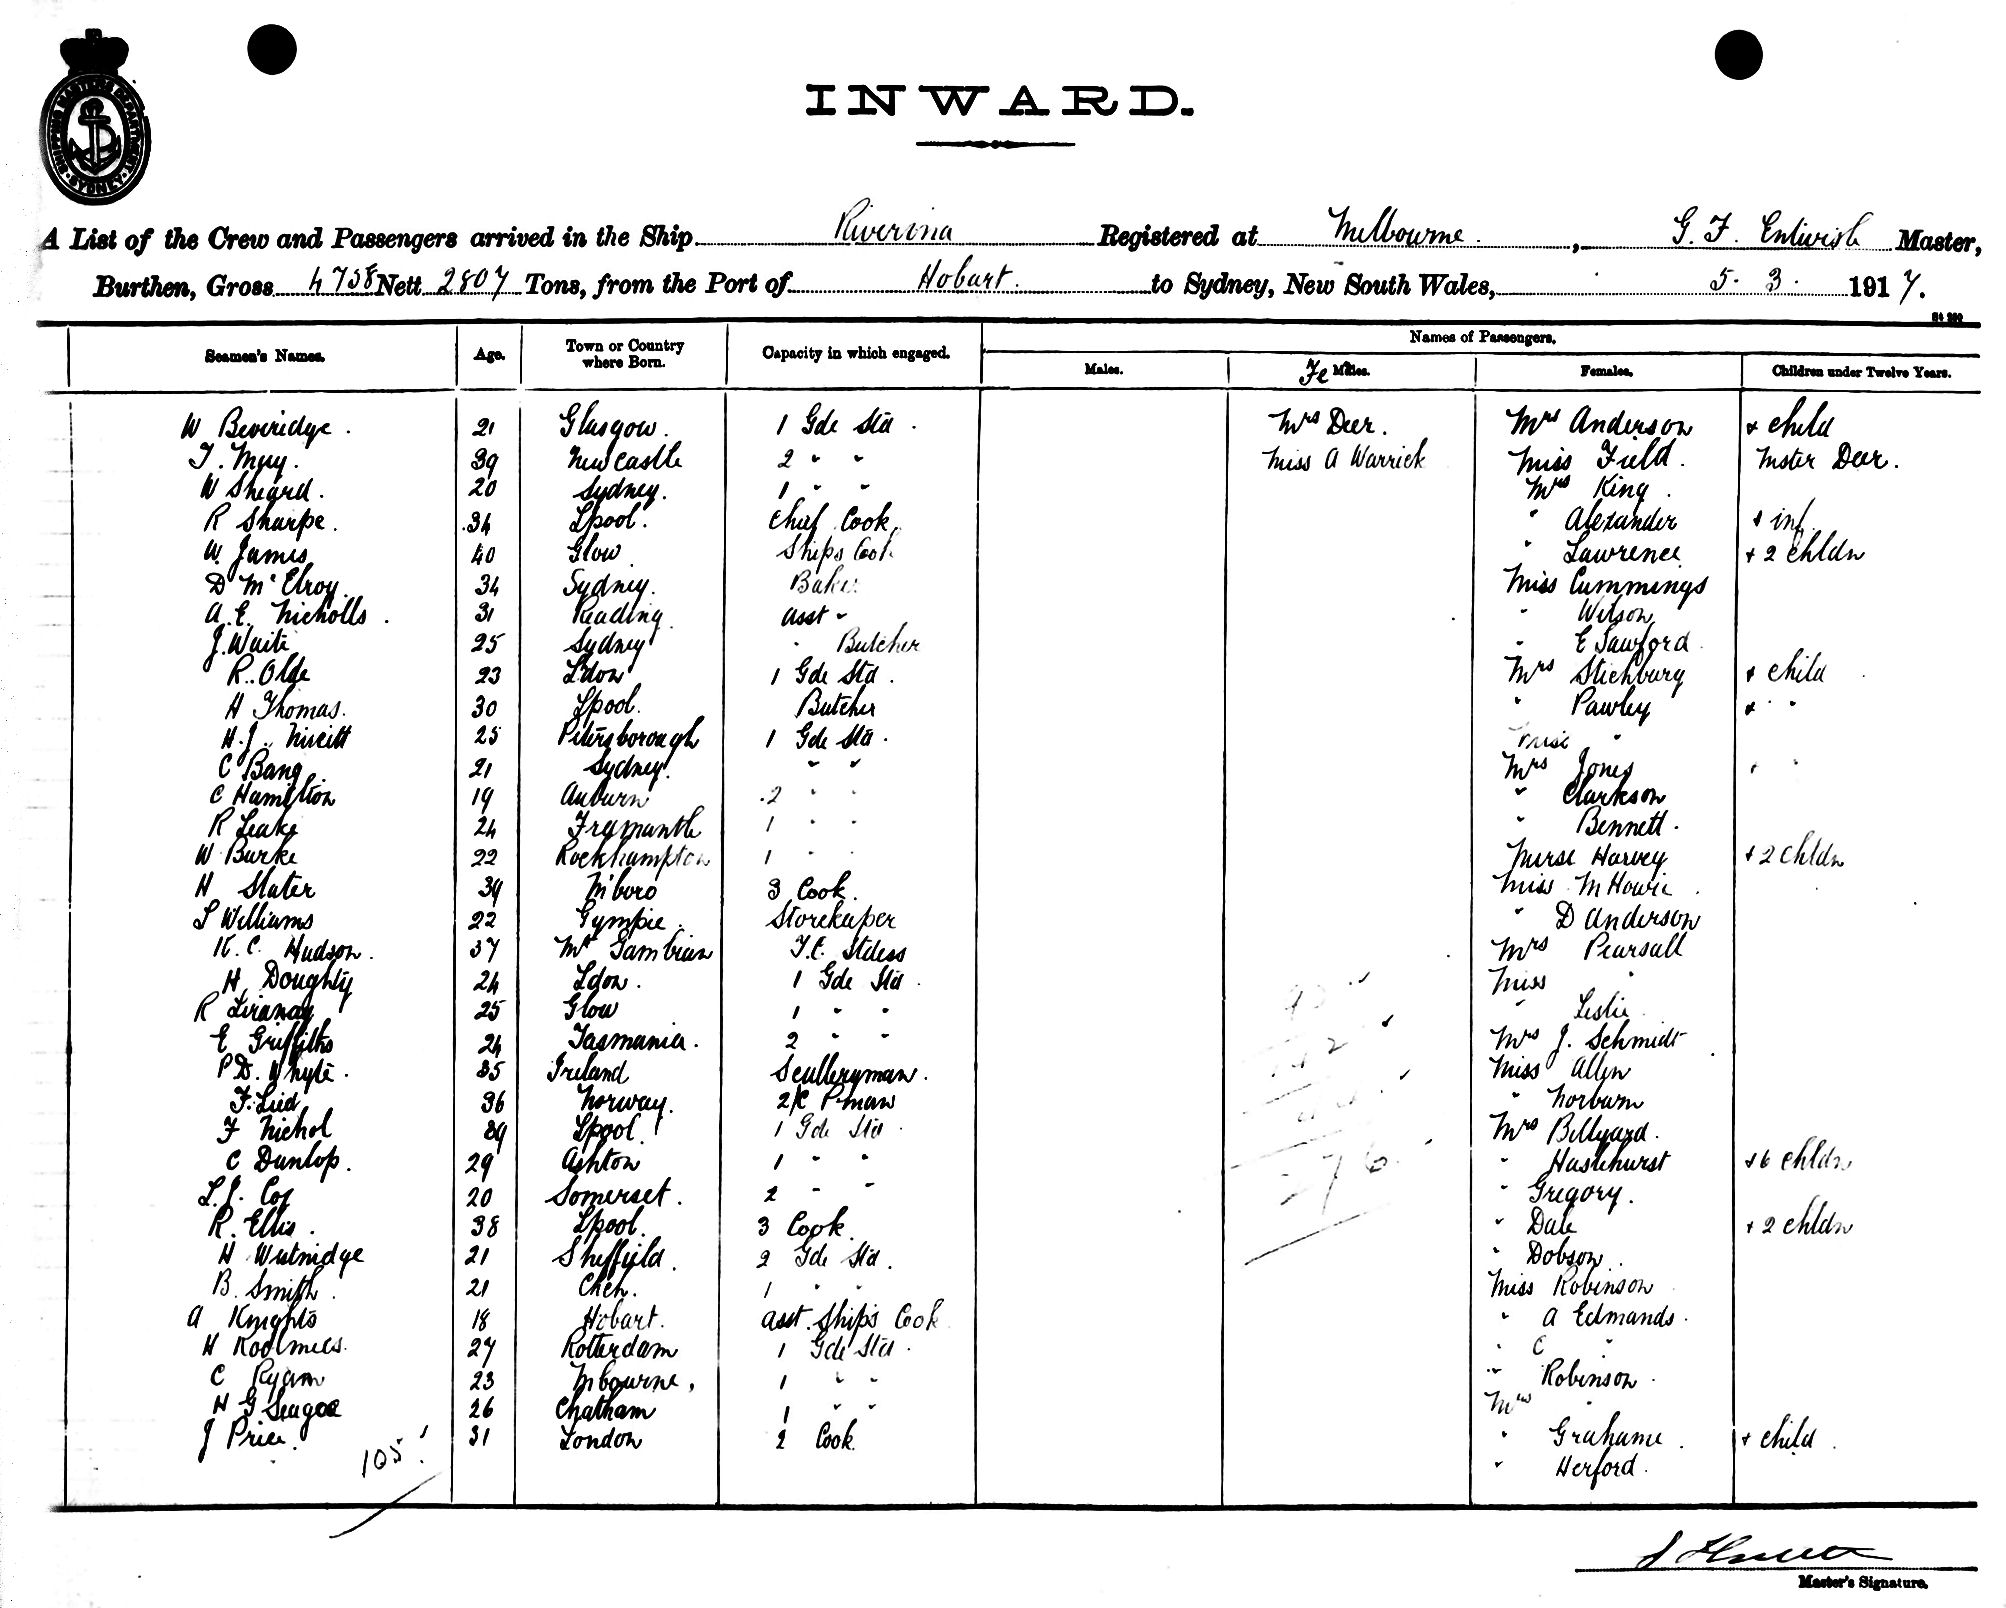 SHIPPING MASTERS DEPARTMENT SYDNEY
INWARD.
A List of the Crew and Passengers arrived in the Ship Riverina Registered at Melbourne. , G. F. Entwisle Master,
Burthen, Gross 4758 Nett 2807 Tons, from the Port of Hobart. to Sydney, New South Wales, 5. 3. 1917.
Names of Passengers.
Seamen's Names. Age. Town or Country where Born. Capacity in which engaged. Males. Fe Males. Females. Children under Twelve Years.
W Beveridge . 21 Glasgow. 1 Gde Std . Mrs Deer. Mrs Anderson + child
T. May. 39 Newcastle 2 " " Miss A Warrick Miss Field. Mster Deer.
W Sheard. 20 Sydney. 1 " " Mrs King .
R Sharpe . 34 Lpool. Chief Cook. " Alexander + inf.
W. James 40 Glow Ships Cook " Lawrence + 2 chldn
D McElroy 34 Sydney. Baker Miss Cummings
A. E. Nicholls . 31 Reading asst " " Wilson
J. Waite 25 Sydney " Butcher " E Sawford
R. Olde 23 Ldon 1 Gde Std . Mrs Stichbury + child
H Thomas. 30 Lpool. Butcher " Pawley + " "
H. J. 25 Petersborough 1 Gde Std . "
C Bang 21 Sydney. " " Mrs Jones " "
C Hamilton 19 Auburn 2 " " " Clarkson
R Leake 24 Fremantle 1 " " " Bennett .
W Burke 22 Rockhampton 1 " " Nurse Harvey + 2 chldn
H Slater 39 M'boro 3 Cook. Miss M Howie
S Williams 22 Gympie . Storekeeper " D Anderson
K. C. Hudson . 37 Mt Gambier F.C. Stdess Mrs Pearsall
H. Doughty 24 Ldon . 1 Gde Std . Miss "
R 25 Glow 1 " " " Leslie
E Griffiths 24 Tasmania. 2 " " Mrs J. Schmidt
P D. Whyte . 35 Ireland Sculleryman . Miss Allen
F. Lied 36 Norway. 2/C P.man " Norburn
F Nichol 39 Lpool 1 Gde Std . Mrs Billyard .
C Dunlop. 29 Ashton 1 " " " Hashhurst + 6 chldn
L. J. Cox 20 Somerset . 2 " " " Gregory .
R. Ellis . 38 Lpool. 3 Cook. " Dale + 2 chldn
H Westnidge 21 Sheffield . 2 Gde Std . " Dobson .
B. Smith . 21 Chch. 1 " " Miss Robinson
A Knights 18 Hobart. asst. Ships Cook " A Edmands .
H Koolmees. 27 Rotterdam 1 Gde Std . " C "
C Ryan 23 Mbourne, 1 " " " Robinson .
H G Seagoe 26 Chatham 1 " " Mrs "
J Price . 31 London 2 Cook " Grahame . + child .
105 " Herford .
276
Master's Signature.